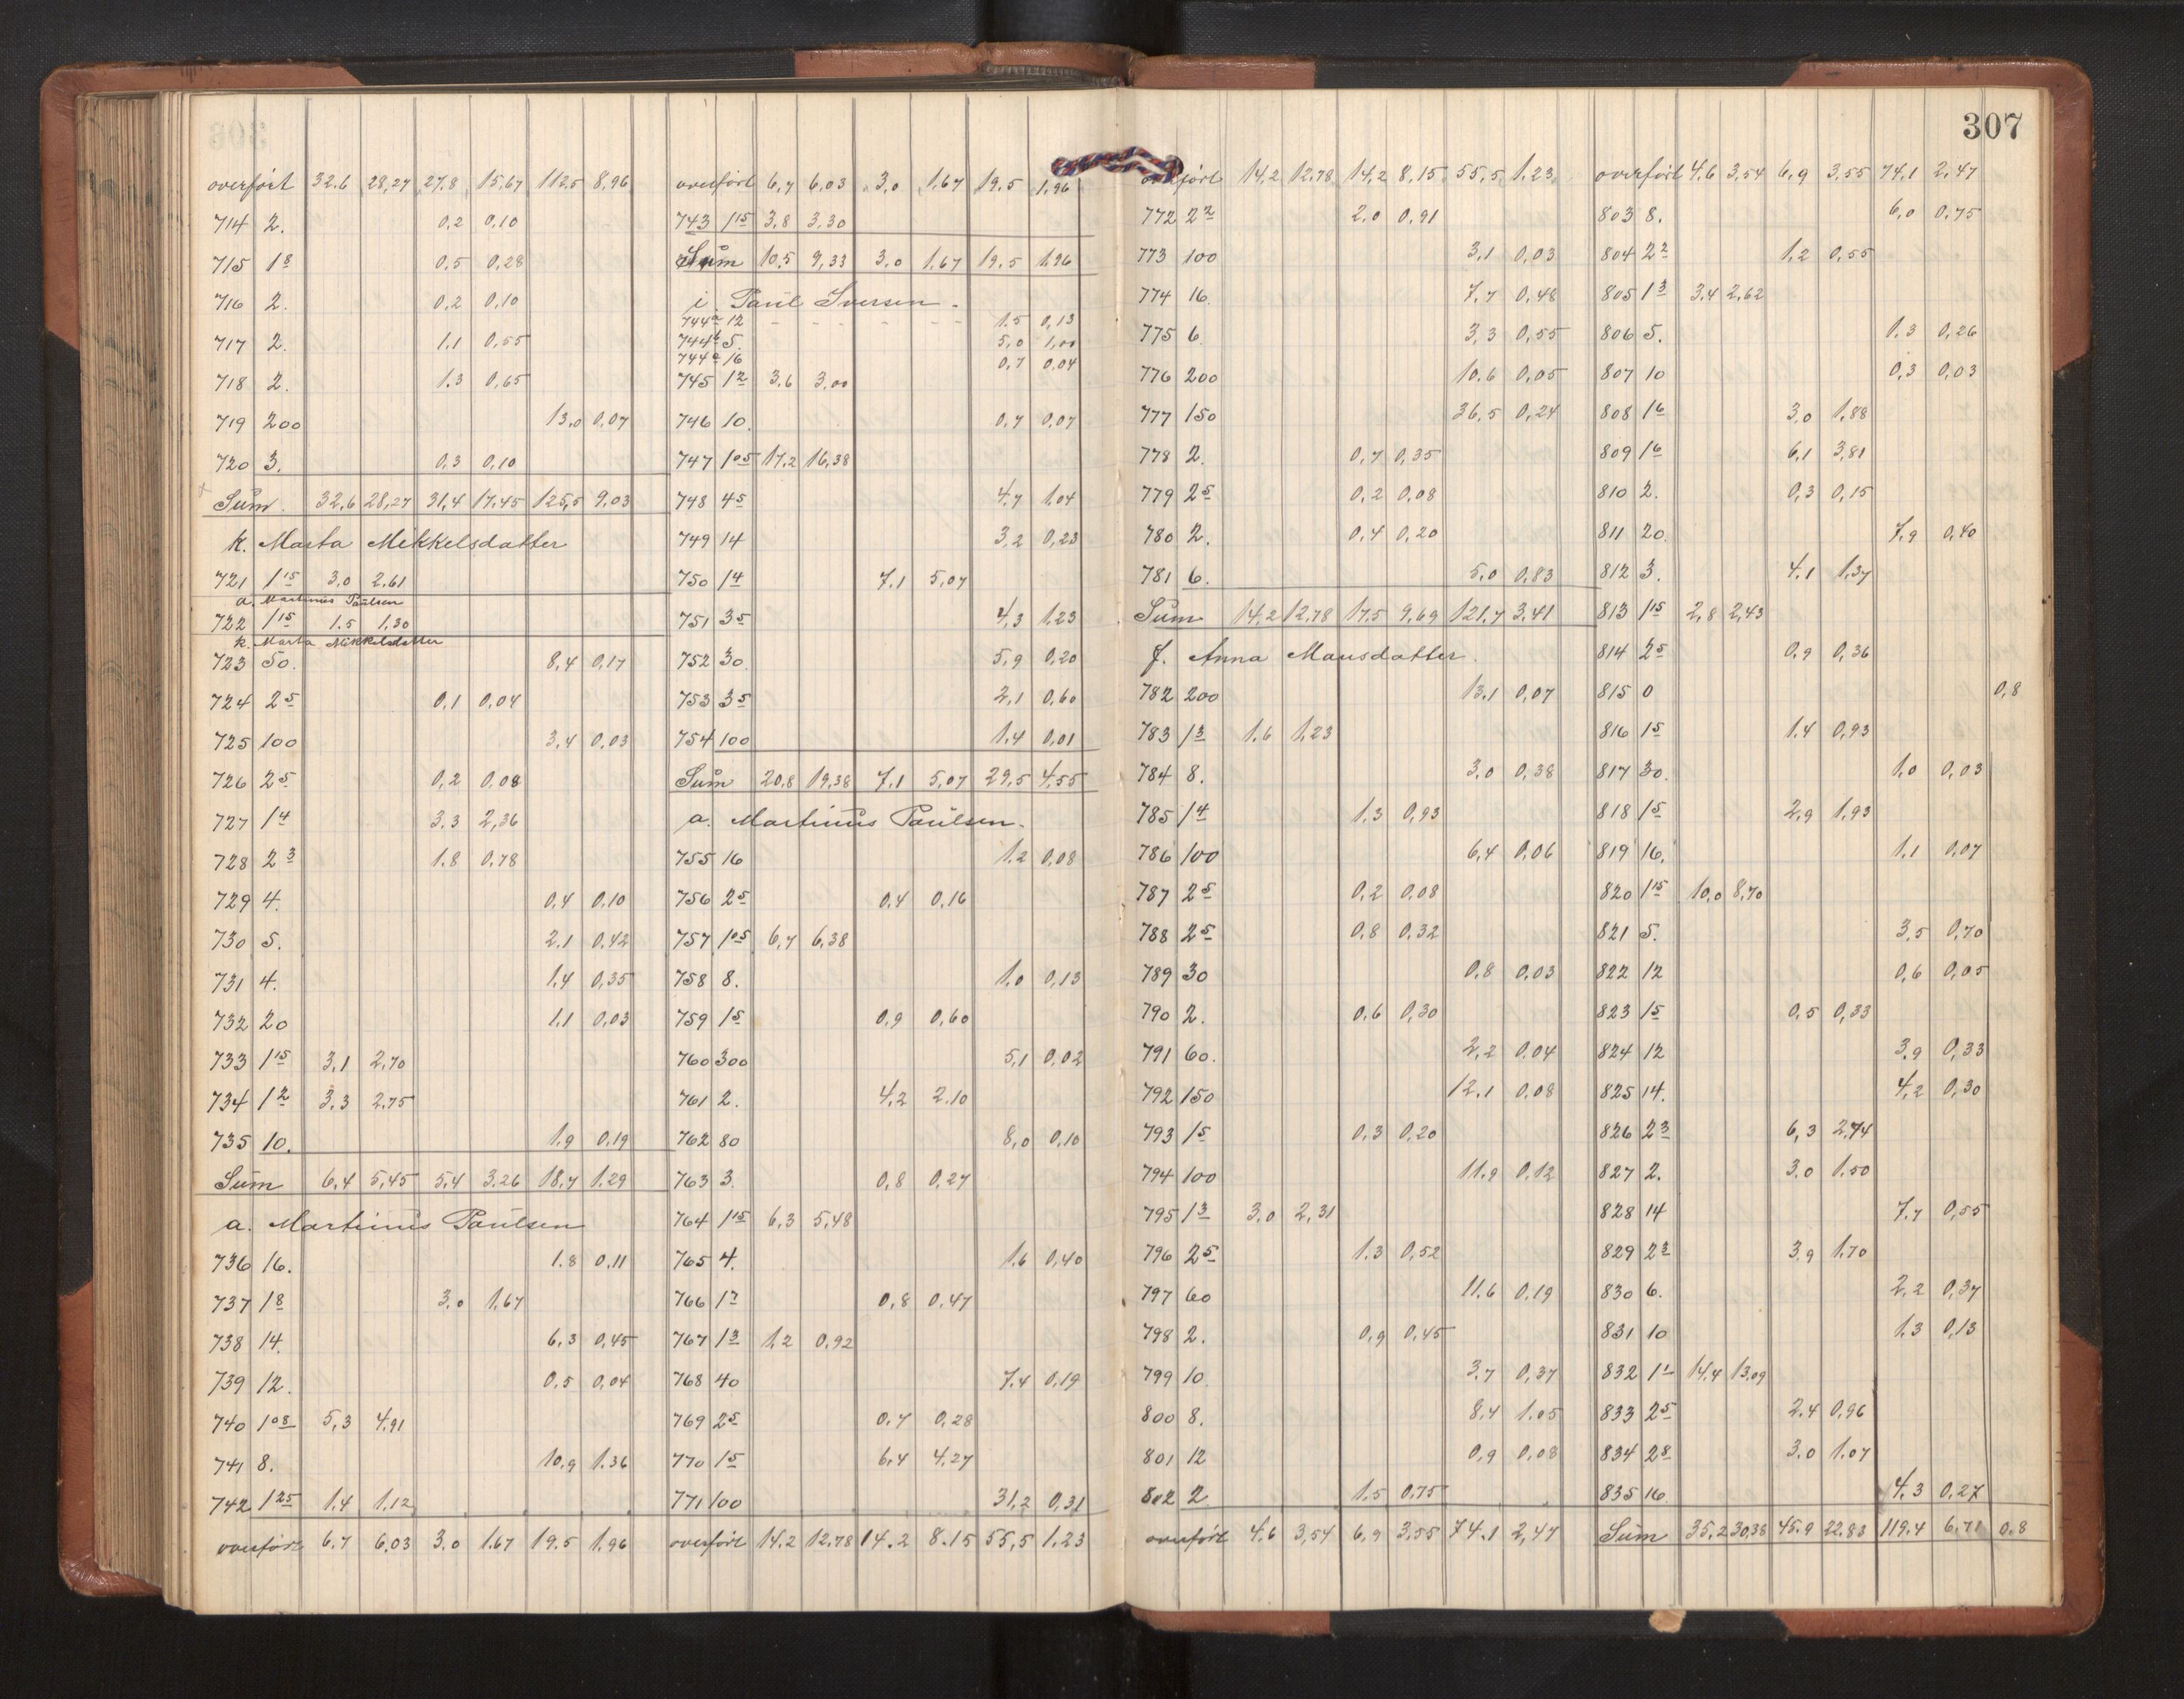 307
overført 32.6 28,27 27.8 15,67 112.5 8,96
714 2. 0,2 0,10
715 1 8 0,5 0,28
716 2. 0,2 0,10
717 2. 1.1 0,55
718 2. 1.3 0,65
719 200 13,0 0,07
720 3. 0,3 0,10
Sum. 32.6 28,27 31,4 17,45 125,5 9,03
k. Marta Mikkelsdatter
721 1 15 3,0 2,61
a. Martinus Paulsen
722 1 15 1.5 1,30
k. Marta Mikkelsdatter
723 50. 8,4 0,17
724 2 5 0,1 0,04
725 100 3,4 0,03
726 2 5 0,2 0,08
727 1 4 3,3 2,36
728 2 3 1.8 0,78
729 4. 0,4 0,10
730 5. 2,1 0,42
731 4. 1,4 0,35
732 20 1,1 0,03
733 1 15 3,1 2,70
734 1 2 3,3 2,75
735 10. 1,9 0,19
Sum 6,4 5,45 5,4 3,26 18,7 1.29
a. Martinus Paulsen
736 16. 1.8 0,11
737 1 8 3,0 1,67
738 14. 6,3 0,45
739 12. 0,5 0,04
740 1 08 5,3 4,91
741 8. 10,9 1.36
742 1 25 1,4 1,12
overført 6,7 6,03 3,0 1.67 19.5 1,96
overført 6,7 6,03 3,0 1,67 19,5 1,96
743 1 15 3,8 3,30
Sum 10,5 9,33 3,0 1,67 19,5 1,96
i. Paul Iversen.
744 a 12 1.5 0,13
744 b 5. 5,0 1,00
744 c 16 0,7 0,04
745 1 2 3,6 3,00
746 10. 0,7 0,07
747 1 05 17,2 16,38
748 4 5 4,7 1,04
749 14 3,2 0,23
750 1 4 7,1 5,07
751 3 5 4,3 1,23
752 30. 5,9 0,20
753 3 5 2,1 0,60
754 100 1,4 0,01
Sum 20,8 19,38 7,1 5,07 29,5 4,55
a. Martinus Paulsen.
755 16 1,2 0,08
756 2 5 0,4 0,16
757 1 05 6,7 6,38
758 8. 1,0 0,13
759 1 5 0,9 0,60
760 300 5,1 0,02
761 2. 4,2 2.10
762 80 8,0 0,10
763 3. 0,8 0,27
764 1 15 6,3 5,48
765 4. 1,6 0,40
766 1 7 0,8 0,47
767 1 3 1,2 0,92
768 40 7,4 0,19
769 2 5 0,7 0,28
770 1 5 6,4 4,27
771 100 31,2 0,31
overført 14,2 12,78 14.2 8.15 55,5 1.23
ført 14,2 12,78 14,2 8,15 55,5 1,23
772 2 2 2,0 0,91
773 100 3,1 0,03
774 16. 7,7 0,48
775 6. 3,3 0,55
776 200 10,6 0,05
777 150 36,5 0,24
778 2. 0,7 0,35
779 2 5 0,2 0,08
780 2. 0,4 0,20
781 6. 5,0 0,83
Sum 14,2 12,78 17,5 9,69 121,7 3,41
f. Anna Mansdatter.
782 200 13,1 0,07
783 1 3 1.6 1,23
784 8. 3,0 0,38
785 1 4 1.3 0,93
786 100 6,4 0,06
787 2 5 0,2 0,08
788 2 5 0,8 0,32
789 30 0,8 0,03
790 2. 0,6 0,30
791 60. 2,2 0,04
792 150 12,1 0,08
793 1 5 0,3 0,20
794 100 11,9 0,12
795 1 3 3,0 2,31
796 2 5 1.3 0,52
797 60 11.6 0,19
798 2. 0,9 0,45
799 10 3,7 0,37
800 8. 8,4 1.05
801 12 0,9 0,08
802 2 1.5 0,75
overført 4.6 3,54 6,9 3,55 74.1 2,47
overført 4,6 3,54 6,9 3,55 74,1 2,47
803 8. 6,0 0,75
804 2 2 1,2 0,55
805 1 3 3,4 2,62
806 5. 1.3 0,26
807 10 0,3 0,03
808 1 6 3,0 1,88
809 1 6 6,1 3,81
810 2. 0,3 0,15
811 20. 7,9 0,40
812 3. 4,1 1,37
813 1 15 2,8 2,43
814 2 5 0,9 0,36
815 0 0,8
816 1 5 1.4 0,93
817 30. 1,0 0,03
818 1 5 2,9 1,93
819 16. 1,1 0,07
820 1 15 10,0 8,70
821 5. 3,5 0,70
822 12 0,6 0,05
823 1 5 0,5 0,33
824 12 3,9 0,33
825 14. 4,2 0,30
826 2 3 6,3 2,74
827 2. 3,0 1,50
828 14 7,7 0,55
829 2 3 3,9 1.70
830 6. 2,2 0,37
831 10 1,3 0,13
832 1 1 14,4 13,09
833 2 5 2.4 0,96
834 2 8 3,0 1.07
835 16 4,3 0,27
Sum 35,2 30,38 45,9 22,83 119,4 6,71 0,8